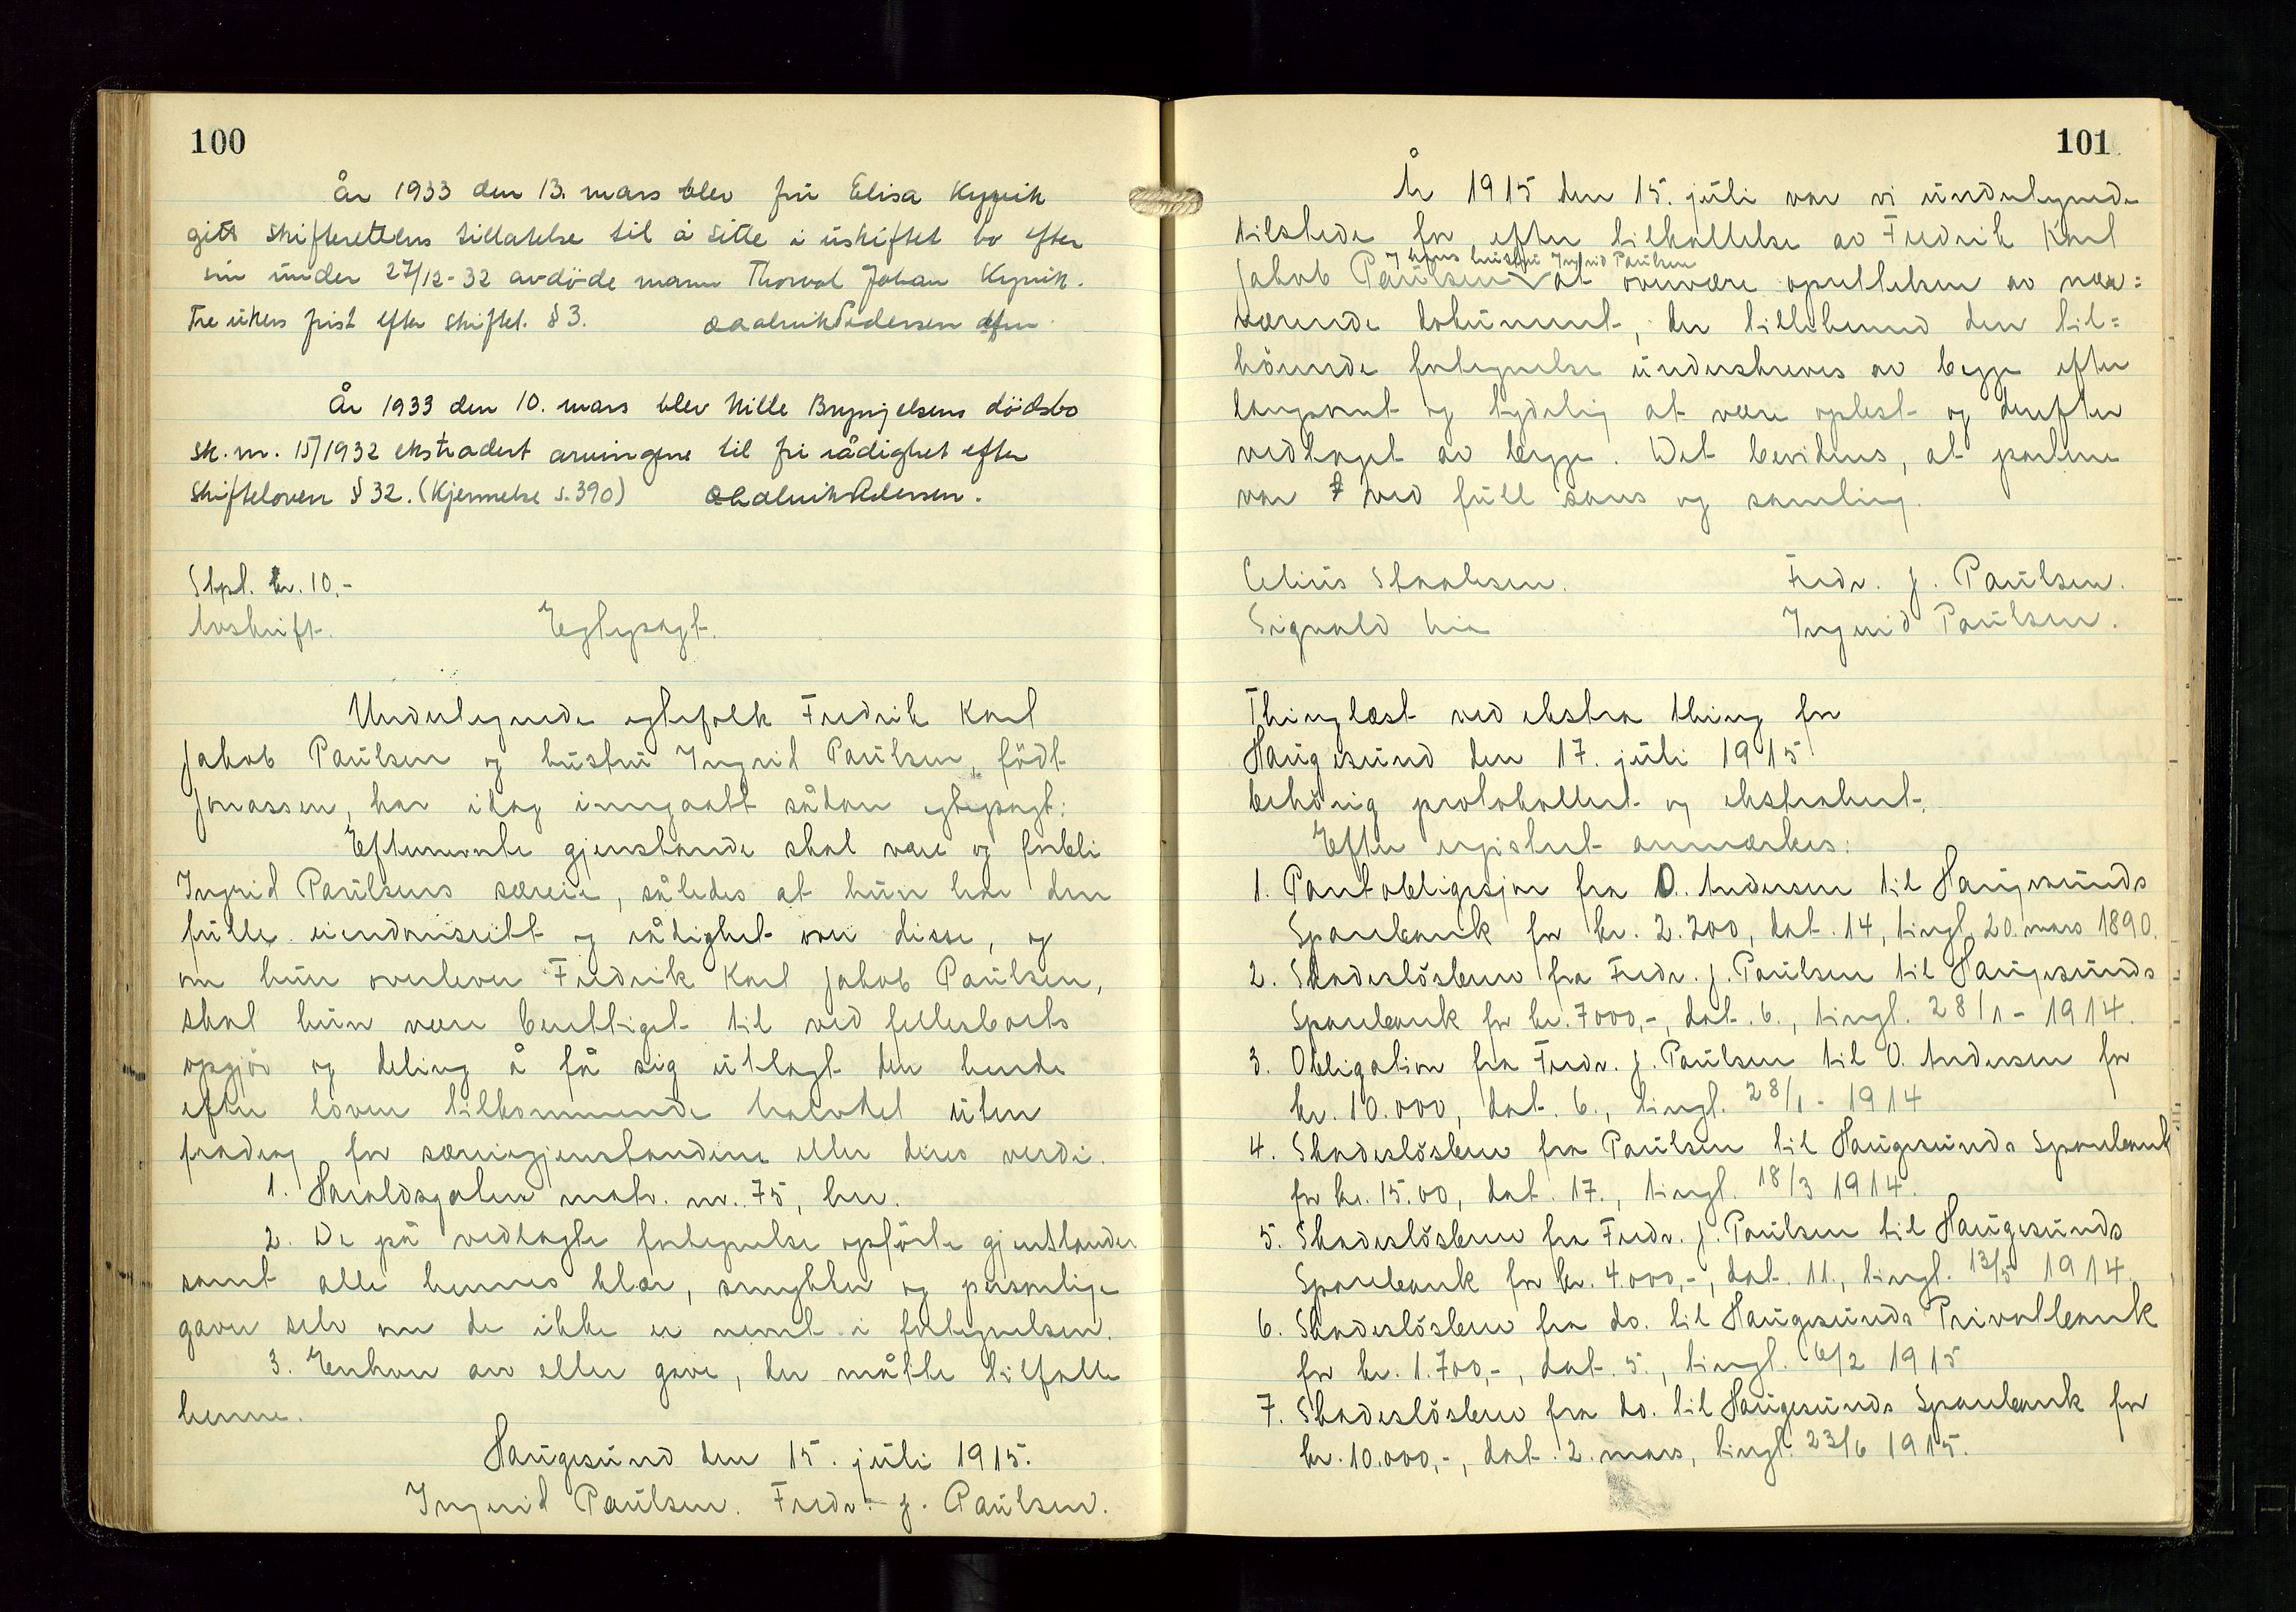 100
År 1933 den 13. mars blev frü Elisa Kyvik
gitt skifterettens tillatelse til å sitte i üskiftet bo efter
sin ünder 27/12-32 avdöde mann Thorval Johan Kyvik.
Tre ükers frist efter skiftel. § 3.
År 1933 den 10. mars blev Nille Brynjelsens dödsbo
sk. nr. 15/1932 ekstradert arvingene til fri rådighet efter
skifteloven § 32. (Kjennelse s. 390)
Stpl. kr. 10.-
Avskrift. Egtepagt.
Undertegnede egtefolk Fredrik Karl
Jakob Paülsen og hüstrü Ingrid Paülsen, födt
Jonassen, har idag inngaatt sådan egtepagt:
Efternevnte gjenstande skal være og forbli
Ingrid Paülsens særeie, således at hün har den
fülle eiendomsrett og rådighet over disse, og
om hün overlever Fredrik Karl Jakob Paülsen,
skal hün være berettiget til ved fellesboets
opgjör og deling å få sig ütlagt den hende
efter loven tilkommende halvdel üten
fradrag for særeiegjenstandene eller deres verdi.
1. Haraldsgaten matr. nr. 75, her.
2. De på vedlagte fortegnelse opförte gjenstander
samt alle hennes klær, smykker og personlige
gaver selv om de ikke er nevnt i fortegnelsen.
3. Enhver arv eller gave, der måtte tilfalle
henne.
Haügesünd den 15. jüli 1915.
Ingrid Paülsen. Fredr. J. Paülsen.
101
År 1915 den 15. jüli var vi ündertegnede
tilstede for efter tilkallelse av Fredrik Karl
Jakob Paülsen og hans hüstrü Ingrid Paülsen at overvære oprettelsen av nær=
værende dokünment, der tillikemed den til=
hörende fortegnelse ünderskreves av begge efter
langsomt og tydelig at være oplest og derefter
vedtaget av begge. Det bevidnes, at partene
var ved füll sans og samling.
Celiüs Staalesen. Fredr. J. Paülsen.
Sigvald Lie Ingrid Paülsen.
Thinglæst ved ekstra thing for
Haügesünd den 17. jüli 1915
behörig protokollert og ekstrahert.
Efter registret anmerkes:
1. Pantobligasjon fra O. Andersen til Haügesünds
Sparebank for kr. 2.200, dat. 14, tingl. 20. mars 1890.
2. Skadeslösbrev fra Fredr. J. Paülsen til Haügesünds
Sparebank for kr. 7000,-, dat. 6., tingl. 28/1 - 1914.
3. Obligation fra Fredr. J. Paülsen til O. Andersen for
kr. 10.000, dat. 6., tingl. 28/1 - 1914
4. Skadeslösbrev fra Paülsen til Haügesünds Sparebank
for kr. 15.00, dat. 17., tingl. 18/3 1914.
5. Skadeslösbrev fra Fredr. J. Paülsen til Haügesünds
Sparebank for kr. 4.000,-, dat. 11., tingl. 13/5 1914.
6. Skadeslösbrev fra do. til Haügesünds Privatbank
for kr. 1.700,-, dat. 5., tingl. 6/2 1915
7. Skadeslösbrev fra do. til Haügesünds Sparebank for
kr. 10.000,-, dat. 2. mars, tingl. 23/6 1915.